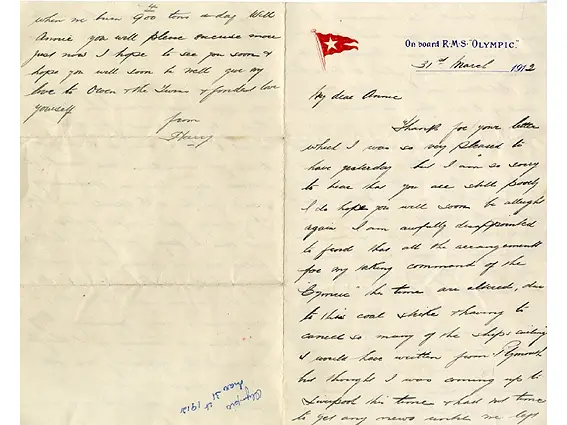 4
when we burn 900 tons a day Well
Annie you will please excuse more
just now I hope to see you soon &
hope you will soon be well give my
love to Owen & the Twins & fondest love
yourself
from
Harry
Olympic
Mar 31st 1912
On board R.M.S. "OLYMPIC."
31st March 1912
My dear Annie
Thanks for your letter
which I was so very pleased to
have yesterday but I am so sorry
to hear that you are still poorly
I do hope you will soon be allright
again I am awfully disappointed
to find that all the arrangements
for my taking command of the
"Cymric" this time are altered, due
to this coal strike & having to
cancel so many of the ships sailing
I would have written from Plymouth
but thought I was coming up to
Liverpool this time & had not time
to get any news until we left